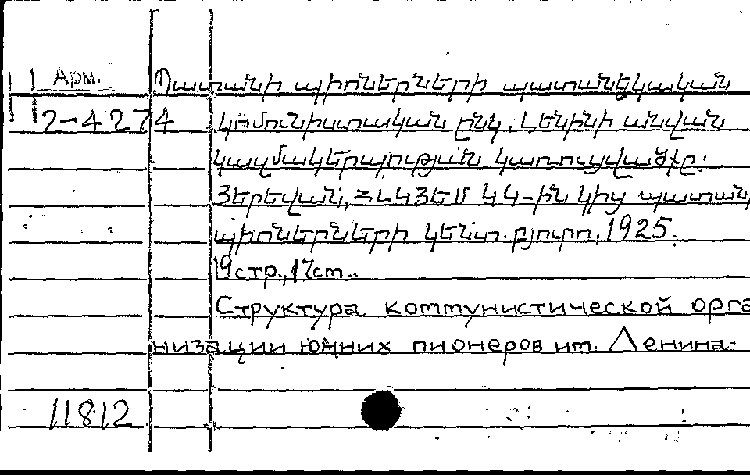 Арм. Պատանի պիոներների պատանեկական
2-4274 կոմունիստական ընկ. Լենինի անվան
կազմակերպության կառուցվածքը:
Յերեվան, ՀԼԿՅԵՄ ԿԿ-ին կից պատան,
պիոներների կենտ. բյուրո, 1925.
19стр., 17cm..
Структура коммунистической орга
низации юных пионеров им. Ленина.
11812